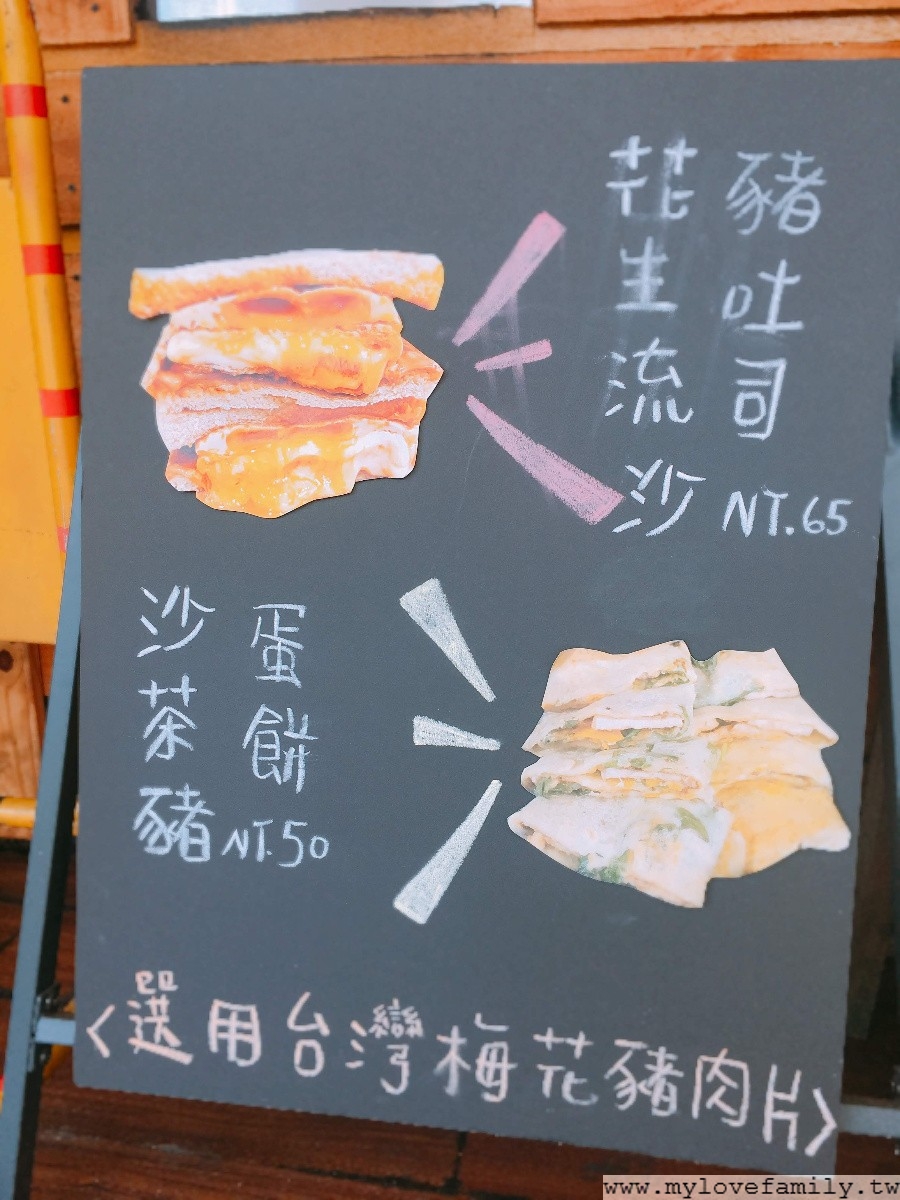 花生流沙
豬吐司
NT.65
沙茶豬
蛋餅
NT.50
<選用台灣梅花豬肉片>
www.mylovefamily.tw